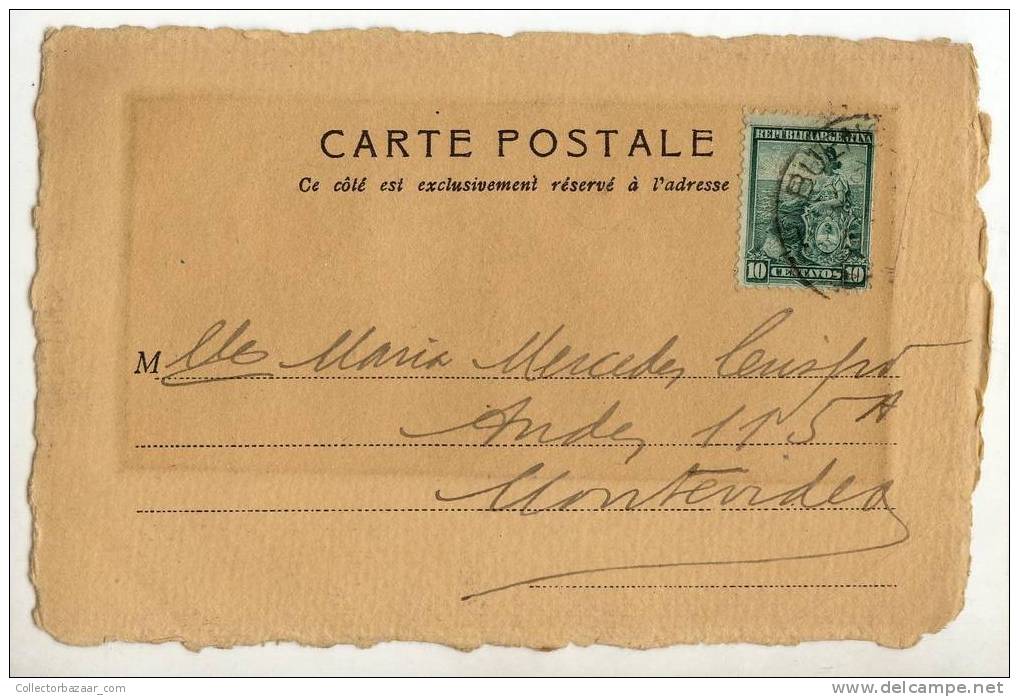 CARTE POSTALE
Ce côté est exclusivement réservé à l'adresse
REPUBLICA ARGENTINA
BUEN
10 CENTAVOS 10
Mlle Maria Mercedes
Andes 115 A
Montevideo
CollectorBazaar_com
www.delcampe.net